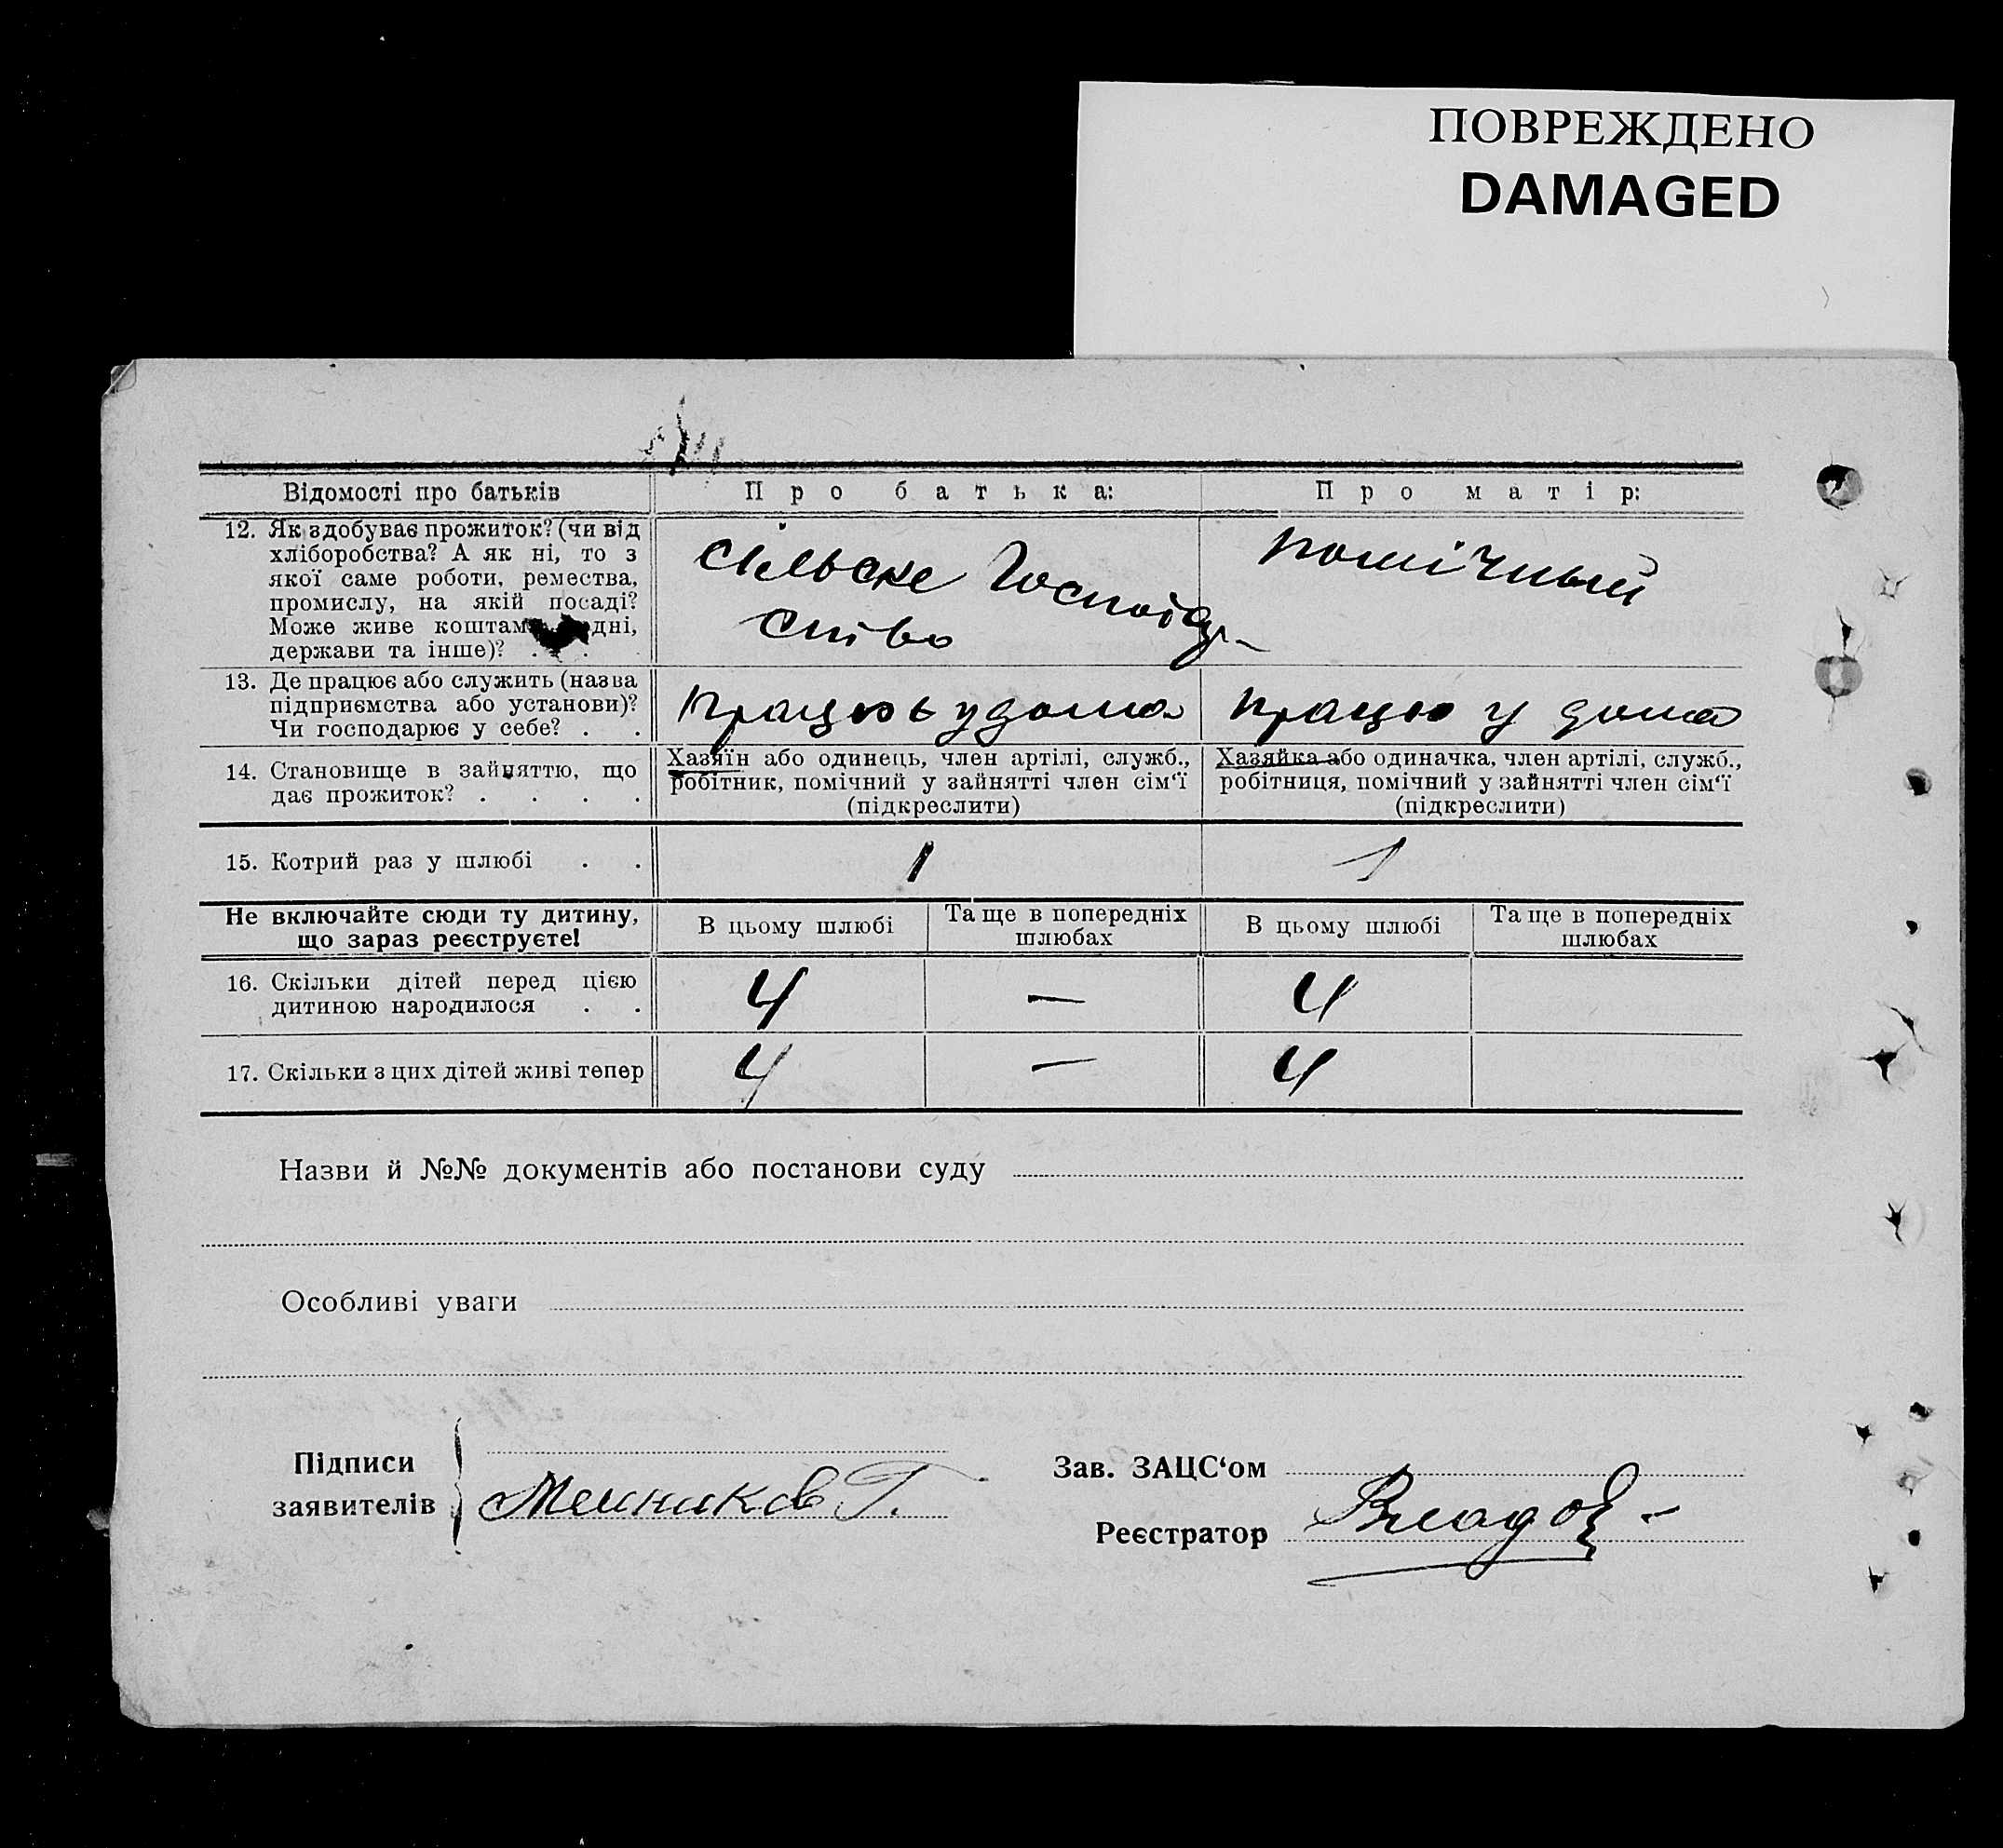 ПОВРЕЖДЕНО
DAMAGED
Відомості про батьків
Про батька:
Про матір:
12. Як здобуває прожиток? (чи від
хліборобства? А як ні, то з
якої саме роботи, ремества,
промислу, на якій посаді?
Може живе коштам дні,
держави та інше)? .
сільське Господар
ство
помічный
13. Де працює або служить (назва
підприємства або установи)?
Чи господарює у себе? . .
працює у дома
працю у дома
14. Становище в зайняттю, що
дає прожиток? . . . .
Хазяїн або одинець, член артілі, служб.,
робітник, помічний у зайнятті член сім‘ї
(підкреслити)
Хазяйка або одиначка, член артілі, служб.,
робітниця, помічний у зайнятті член сім‘ї
(підкреслити)
15. Котрий раз у шлюбі . .
1
1
Не включайте сюди ту дитину,
що зараз реєструєте!
В цьому шлюбі
Та ще в попередніх
шлюбах
В цьому шлюбі
Та ще в попередніх
шлюбах
16. Скільки дітей перед цією
дитиною народилося . .
4 — 4
17. Скільки з цих дітей живі тепер
4 — 4
Назви й №№ документів або постанови суду
Особливі уваги
Підписи
заявителів
Мельников Г.
Зав. ЗАЦС‘ом
Реєстратор